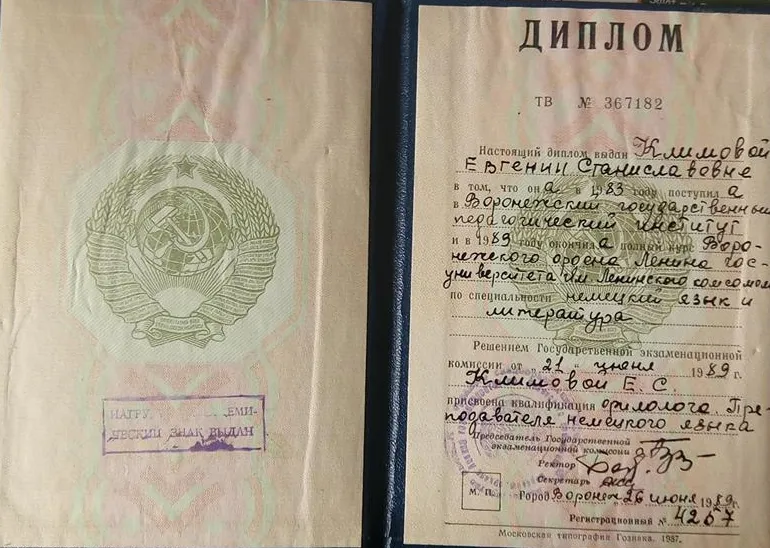 ЗНАК ВЫДАН
ДИПЛОМ
ТВ № 367182
Настоящий диплом выдан Климовой
Евгении Станиславовне
в том, что она в 1983 году поступила
в Воронежский государственный
педагогический институт
и в 1989 году окончила полный курс Воро-
нежского ордена Ленина гос-
университета им. Ленинского комсомола
по специальности немецкий язык и
литература
Решением Государственной экзаменационной
комиссии от „21“ июня 1989 г.
Климовой Е. С.
присвоена квалификация филолога. Пре-
подавателя немецкого языка
Председатель Государственной
экзаменационной комиссии
Ректор
Секретарь
М. П.
Город Воронеж 26 июня 1989 г.
Регистрационный № 4257
Московская типография Гознака. 1987.